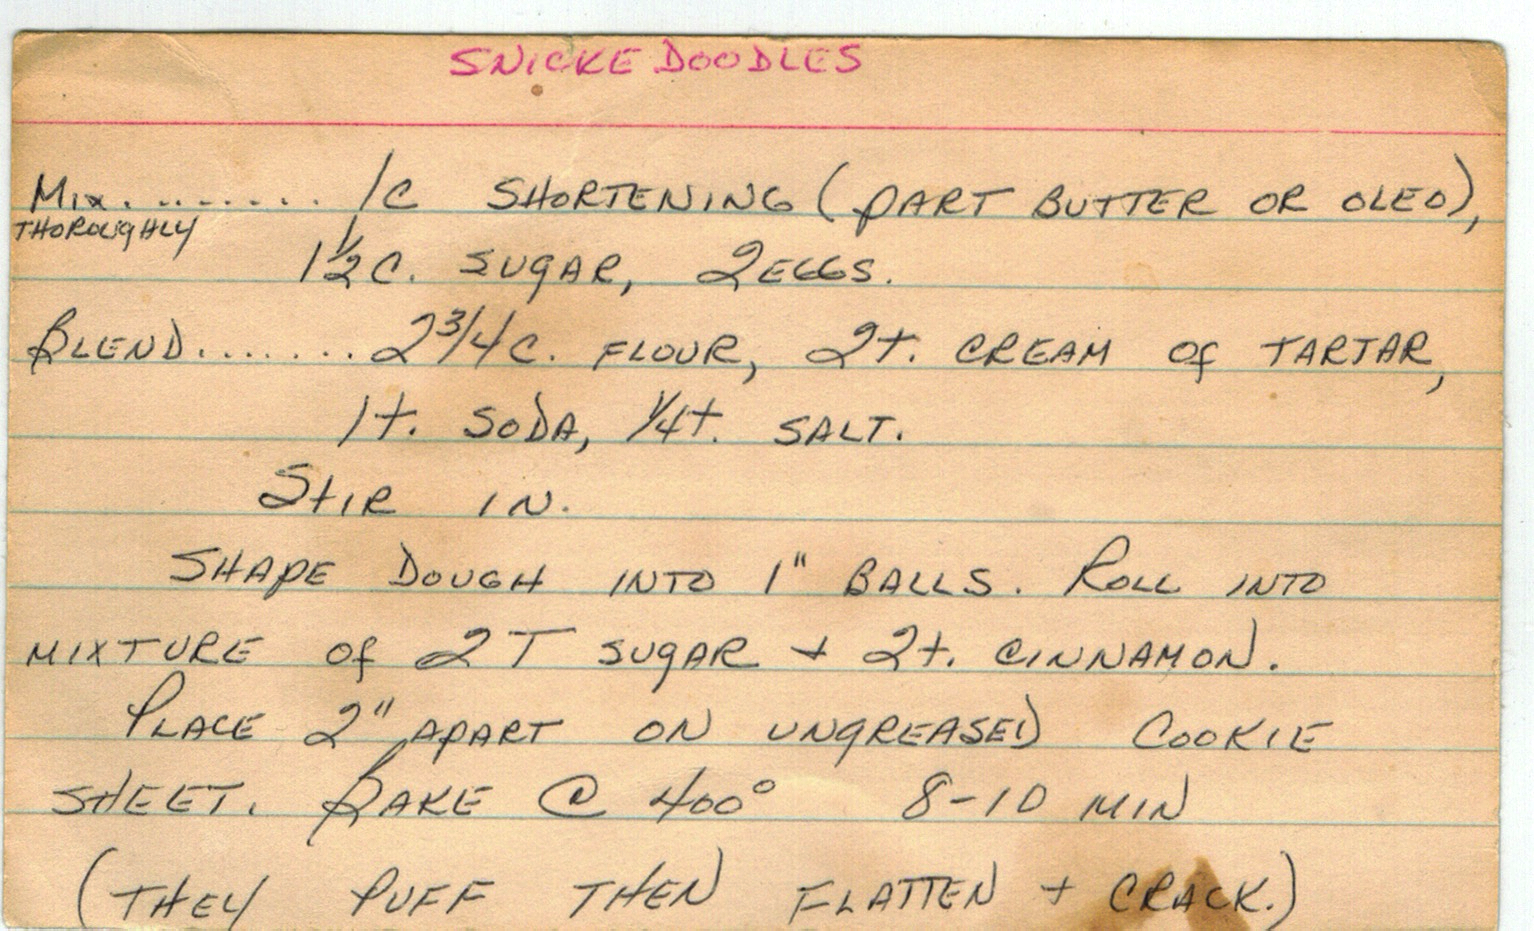 SNICKE DOODLES
MIX......... 1C SHORTENING (PART BUTTER OR OLEO),
THOROUGHLY
1 1/2 C. SUGAR, 2 EGGS.
BLEND........ 2 3/4 C. FLOUR, 2t. CREAM Of TARTAR,
1t. SODA, 1/4t. SALT.
STIR IN.
SHAPE DOUGH INTO 1" BALLS. ROLL INTO
MIXTURE Of 2T SUGAR + 2t. CINNAMON.
PLACE 2" APART ON UNGREASED COOKIE
SHEET. BAKE @ 400° 8-10 MIN
(THEY PUFF THEN FLATTEN + CRACK.)